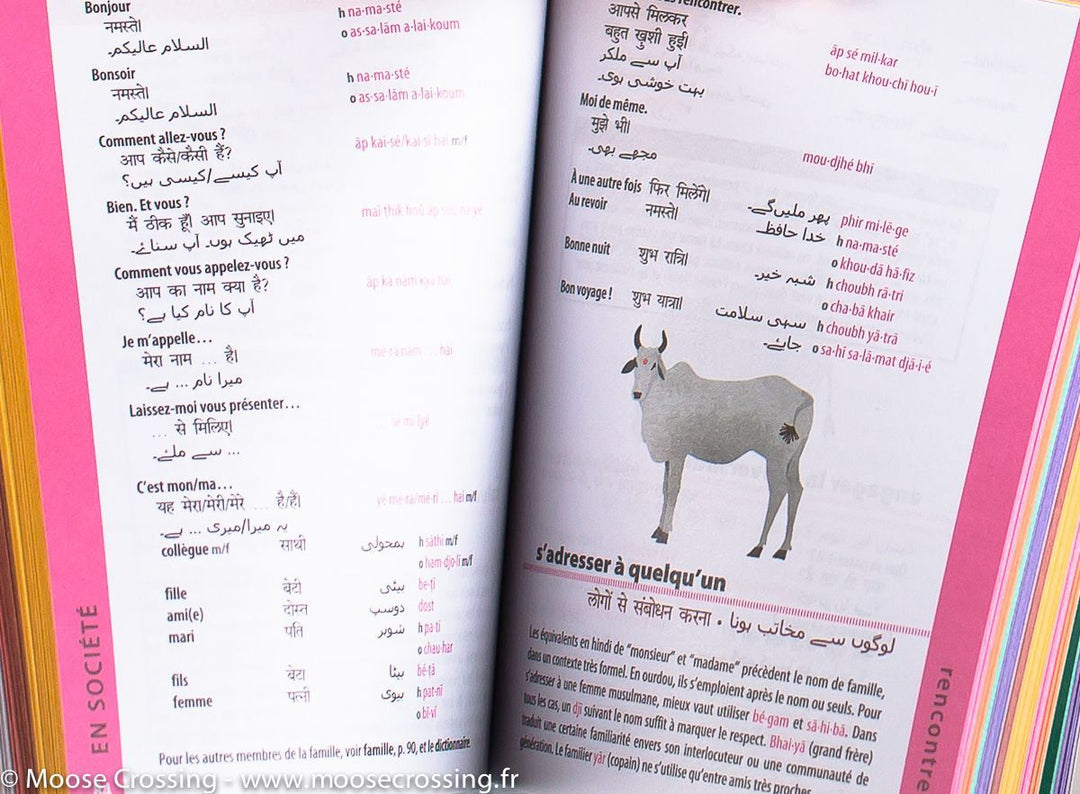 Bonjour
नमस्ते। h na-ma-sté
السلام عالیکم۔ o as-sa-lām a-lai-koum
Bonsoir
नमस्ते। h na-ma-sté
السلام عالیکم۔ o as-sa-lām a-lai-koum
Comment allez-vous ?
आप कैसे/कैसी हैं? āp kai-sé/kai-sī haĩ m/f
آپ کیسے/کیسی ہیں؟
Bien. Et vous ?
मैं ठीक हूँ। आप सुनाइए।
میں ٹھیک ہوں۔ آپ سنائے۔
Comment vous appelez-vous ?
आप का नाम क्या है? āp kā nām kyā hai
آپ کا نام کیا ہے؟
Je m’appelle…
मेरा नाम … है। mé-rā nām … hai
میرا نام … ہے۔
Laissez-moi vous présenter…
… से मिलिए।
… سے ملئے۔
C’est mon/ma…
यह मेरा/मेरी/मेरे … है/हैं। yé mé-rā/mé-rī … hai m/f
یہ میرا/میری … ہے۔
collègue m/f साथी ہمجولی h sāthī m/f
o ham-djo-lī m/f
fille बेटी بیٹی bé-tī
ami(e) दोस्त دوسپ dost
mari पति شوہر h pa-ti
o chau-har
fils बेटा بیٹا bé-tā
femme पत्नी بیوی h pat-nī
o bī-vī
Pour les autres membres de la famille, voir famille, p. 90, et le dictionnaire
EN SOCIÉTÉ
rencontrer.
आपसे मिलकर āp sé mil-kar
बहुत खुशी हुई। bo-hat khou-chī hou-ī
آپ سے ملکر
بہت خوشی ہوی۔
Moi de même.
मुझे भी। mou-djhé bhī
مجھے بھی۔
À une autre fois फिर मिलेंगे। پھر ملیں گے۔ phir mi-lē-ge
Au revoir नमस्ते। خدا حافظ۔ h na-ma-sté
o khou-dā hā-fiz
Bonne nuit शुभ रात्रि। شبہ خیر۔ h choubh rā-tri
o cha-bā khair
Bon voyage ! शुभ यात्रा। سہی سلامت h choubh yā-trā
جایئے۔ o sa-hī sa-lā-mat djā-i-é
s’adresser à quelqu’un
लोगों से संबोधन करना • لوگوں سے مخاتب ہونا
Les équivalents en hindi de “monsieur” et “madame” précèdent le nom de famille,
dans un contexte très formel. En ourdou, ils s’emploient après le nom ou seuls. Pour
s’adresser à une femme musulmane, mieux vaut utiliser bé-gam et sā-hi-bā. Dans
tous les cas, un djī suivant le nom suffit à marquer le respect. Bhai-yā (grand frère)
traduit une certaine familiarité envers son interlocuteur ou une communauté de
génération. Le familier yār (copain) ne s’utilise qu’entre amis très proches.
rencontre
© Moose Crossing - www.moosecrossing.fr